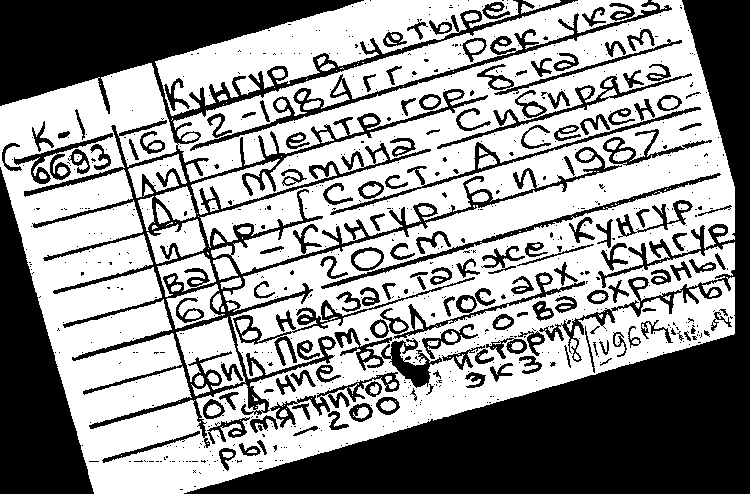 Кунгур в четырех
СК-1
6693
1662-1984 гг.: Рек. указ.
лит. / Центр. гор. б-ка им.
Д. Н. Мамина-Сибиряка
и др.; [Сост.: А. Семено-
ва]. - Кунгур: Б. и., 1987. -
66 с.; 20 см.
В надзаг. также: Кунгур.
фил. Перм. обл. гос. арх., Кунгур.
отд-ние Всерос. о-ва охраны
памятников истории и культ
ры. - 200 экз.
18/IV96